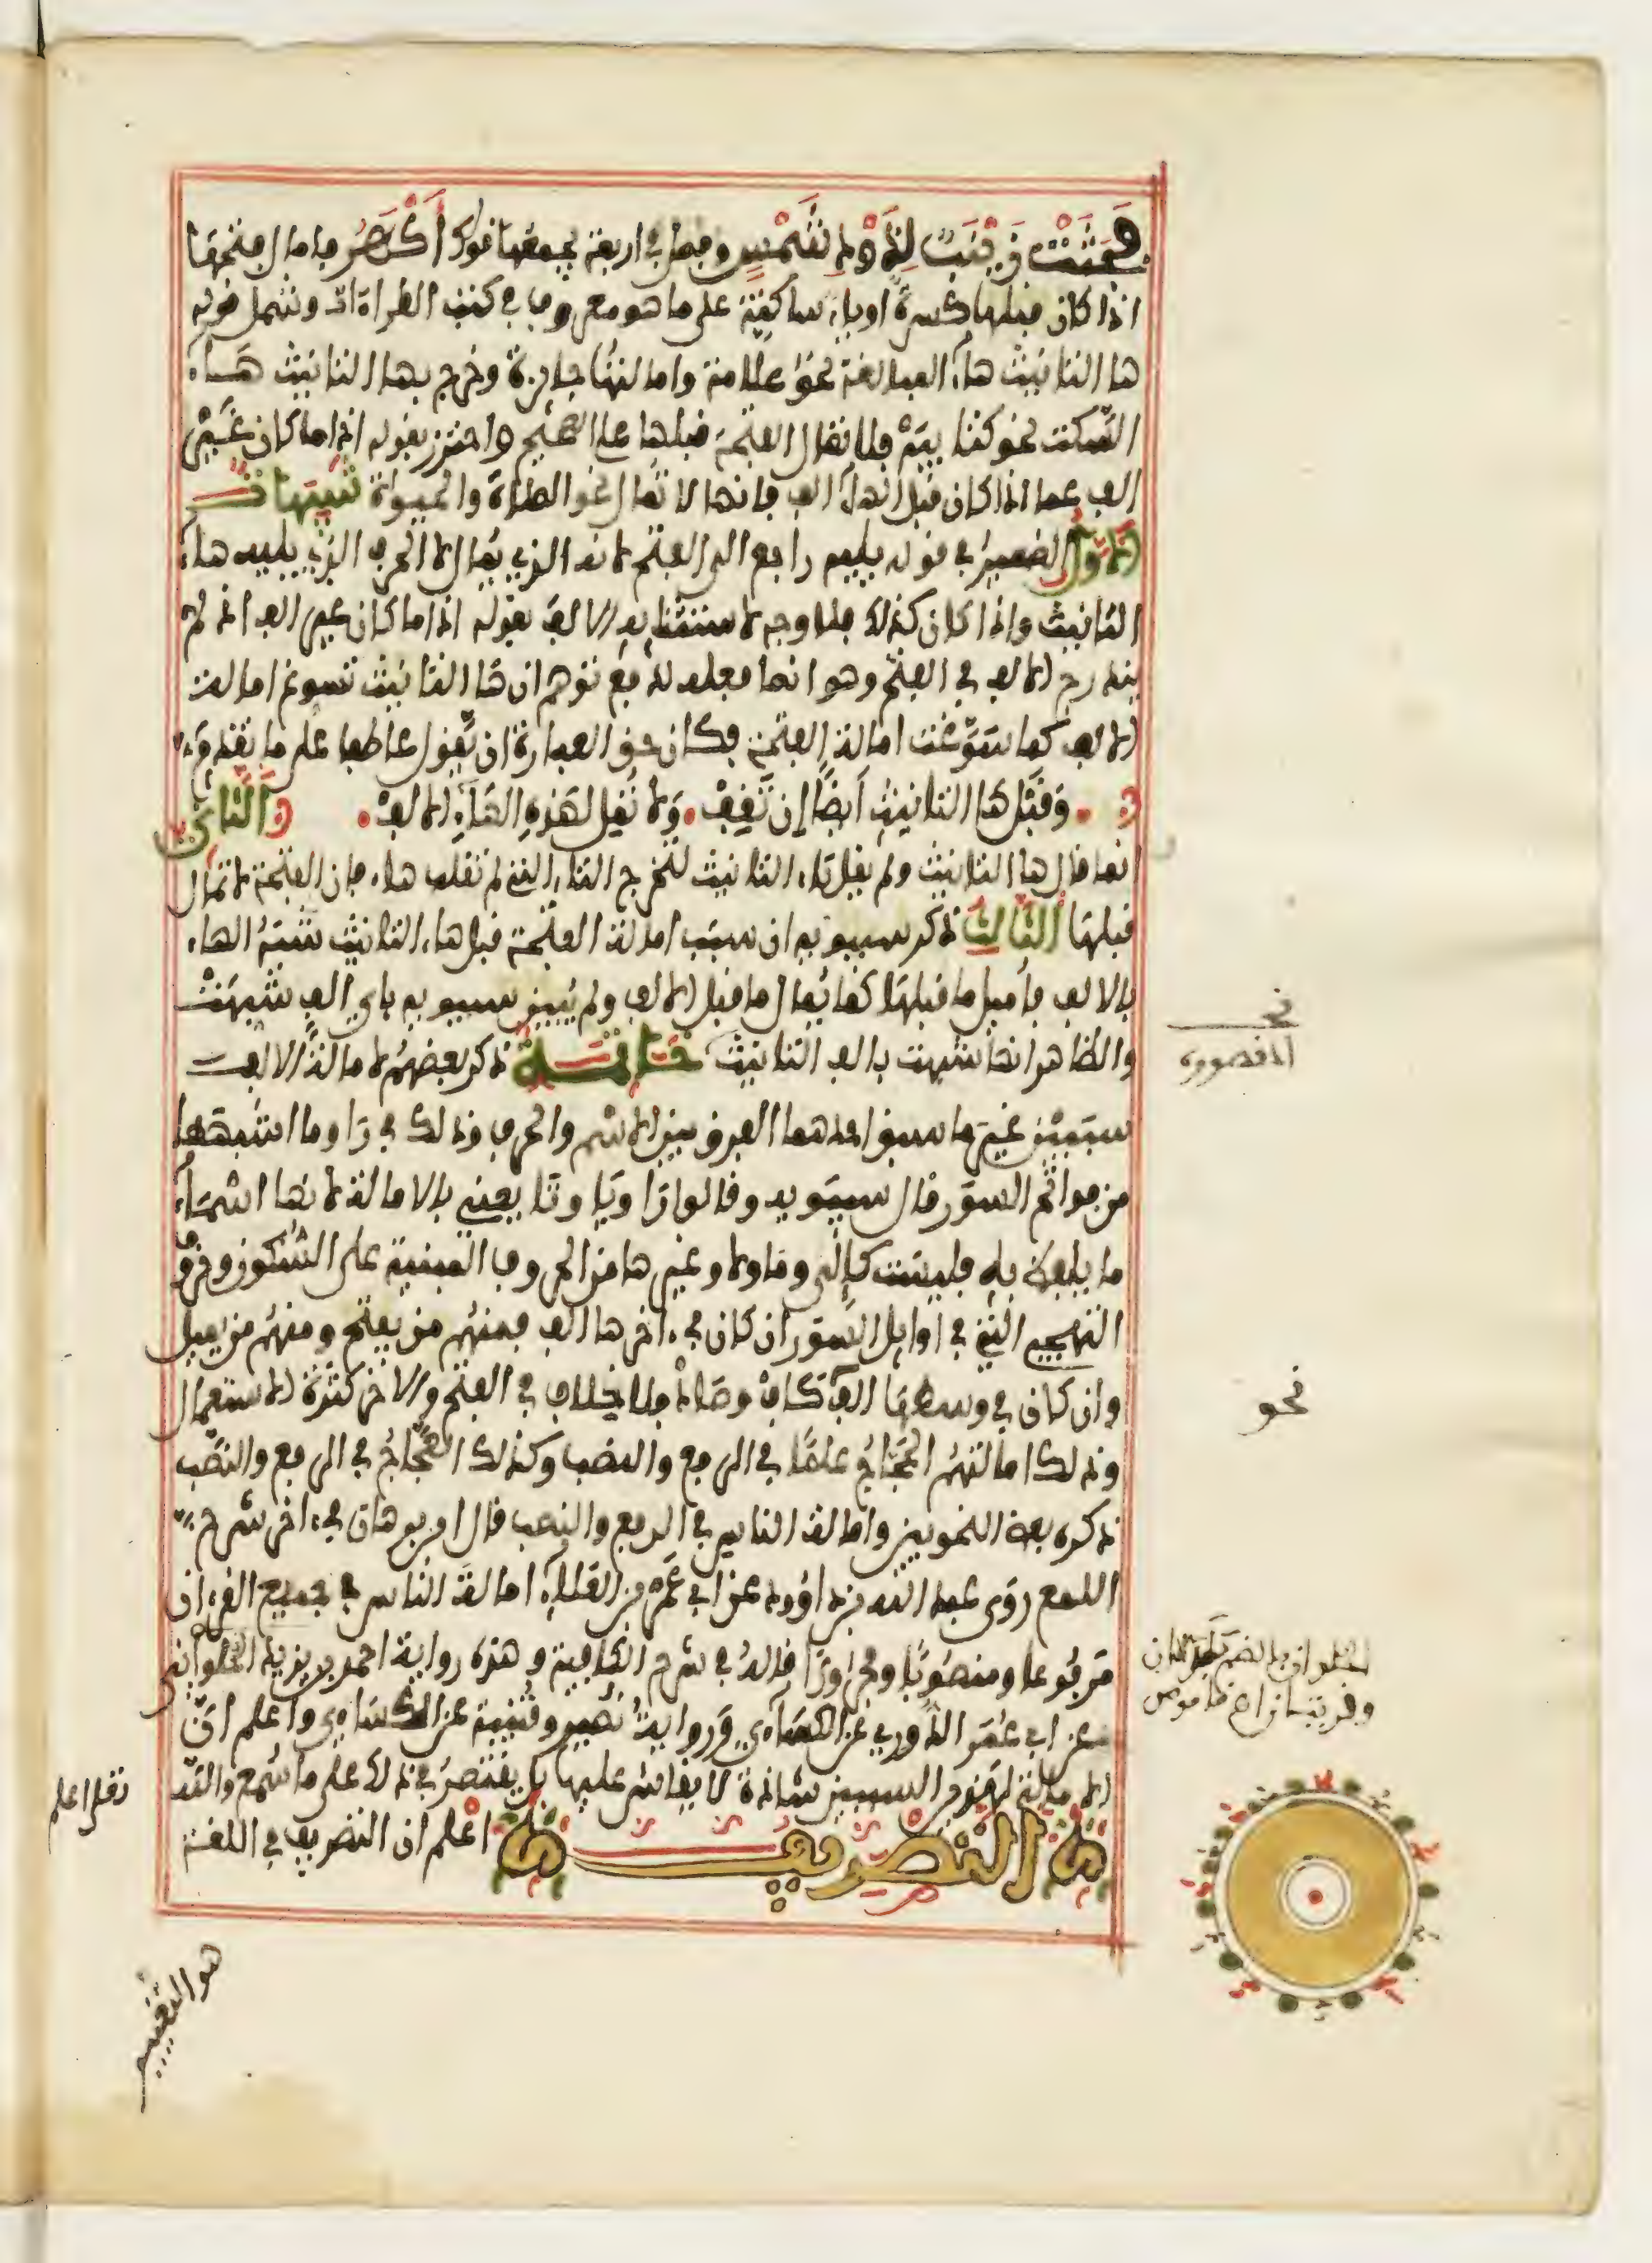 فجثت زينب لذود شمس وفصل في اربعة يجمعها قولك أكهر فامال فتحتها
اذا كان قبلها كسرة او ياء ساكنة على ما هو معروف في كتب القراءات وشمل قوله
ها التانيث هاء المبالغة نحو علامة وامالتها جايزة وخرج بها التانيث هاء
السكت نحو كتابيه فلا تمال الفتحة قبلها على الصحيح واحترز بقوله اذا ما كان غير
الف عما اذا كان قبل الهاء الف فانها لا تمال نحو الصلاة والحيوة تنبيهات
الاول الضمير في قوله يليه راجع الى الفتح لانه الذي يمال لا الحرف الذي يليه هاء
التانيث واذا كان كذلك فلا وجه لاستثنايه الالف بقوله اذا ما كان غير الف اذ لم
يندرج الالف في الفتح وهو انما فعله لدفع توهم ان ها التانيث تسوغ امالة
الالف كما سوغت امالة الفتحة فكان حق العبارة ان يقول عاطفا على ما تقدم
وقبل ها التانيث أيضا إن تقف . ولا تمل لهذه الهاء الالف . والثاني
انما قال ها التانيث ولم يقل تاء التانيث لتخرج التاء التي لم تقلب هاء فان الفتحة لا تمال
قبلها الثالث ذكر سيبويه ان سبب امالة الفتحة قبل هاء التانيث شبه الهاء
بالالف فأميل ما قبلها كما يمال ما قبل الالف ولم يبين سيبويه باي الف شبهت
والظاهر انها شبهت بالف التانيث خاتمة ذكر بعضهم لامالة الالف
سببين غير ما سبق احدهما الفرق بين الاسم والحرف وذلك في را وما اشبهها
من فواتح السور قال سيبويه وقالوا را ويا وتا يعني بالامالة لانها اسماء
ما يلفظ به فليست كإلى وما ولا وغيرها من الحروف المبنية على السكون وحروف
التهجي التي في اوايل السور ان كان في ءاخرها الف فمنهم من يفتح ومنهم من يميل
وان كان في وسطها الف ككاف وصاد فلا خلاف في الفتح والاخر كثرة الاستعمال
وذلك امالتهم الحجاج علما في الرفع والنصب وكذلك العجاج في الرفع والنصب
ذكره بعض النحويين وامالة الناس في الرفع والنصب قال ابن برهان في ءاخر شرح
اللمع روى عبد الله بن داوود عن ابي عمرو بن العلاء امالة الناس في جميع القرءان
مرفوعا ومنصوبا ومجرورا قاله في شرح الكافية وهذه رواية احمد بن يزيد الحلواني
عن ابي عمر الدوري عن الكساءي ورواية نصير وقتيبة عن الكساءي واعلم ان
الامالة لهذين السببين شاذة لا يقاس عليها بل يقتصر في ذلك على ما سمع والله
تعلى اعلم
التصريف اعلم ان التصريف في اللغة
هو التغيير
نحـ
المقصورة
نحو
الحلوان بالضم بلدتان
وقريتان اهـ قاموس